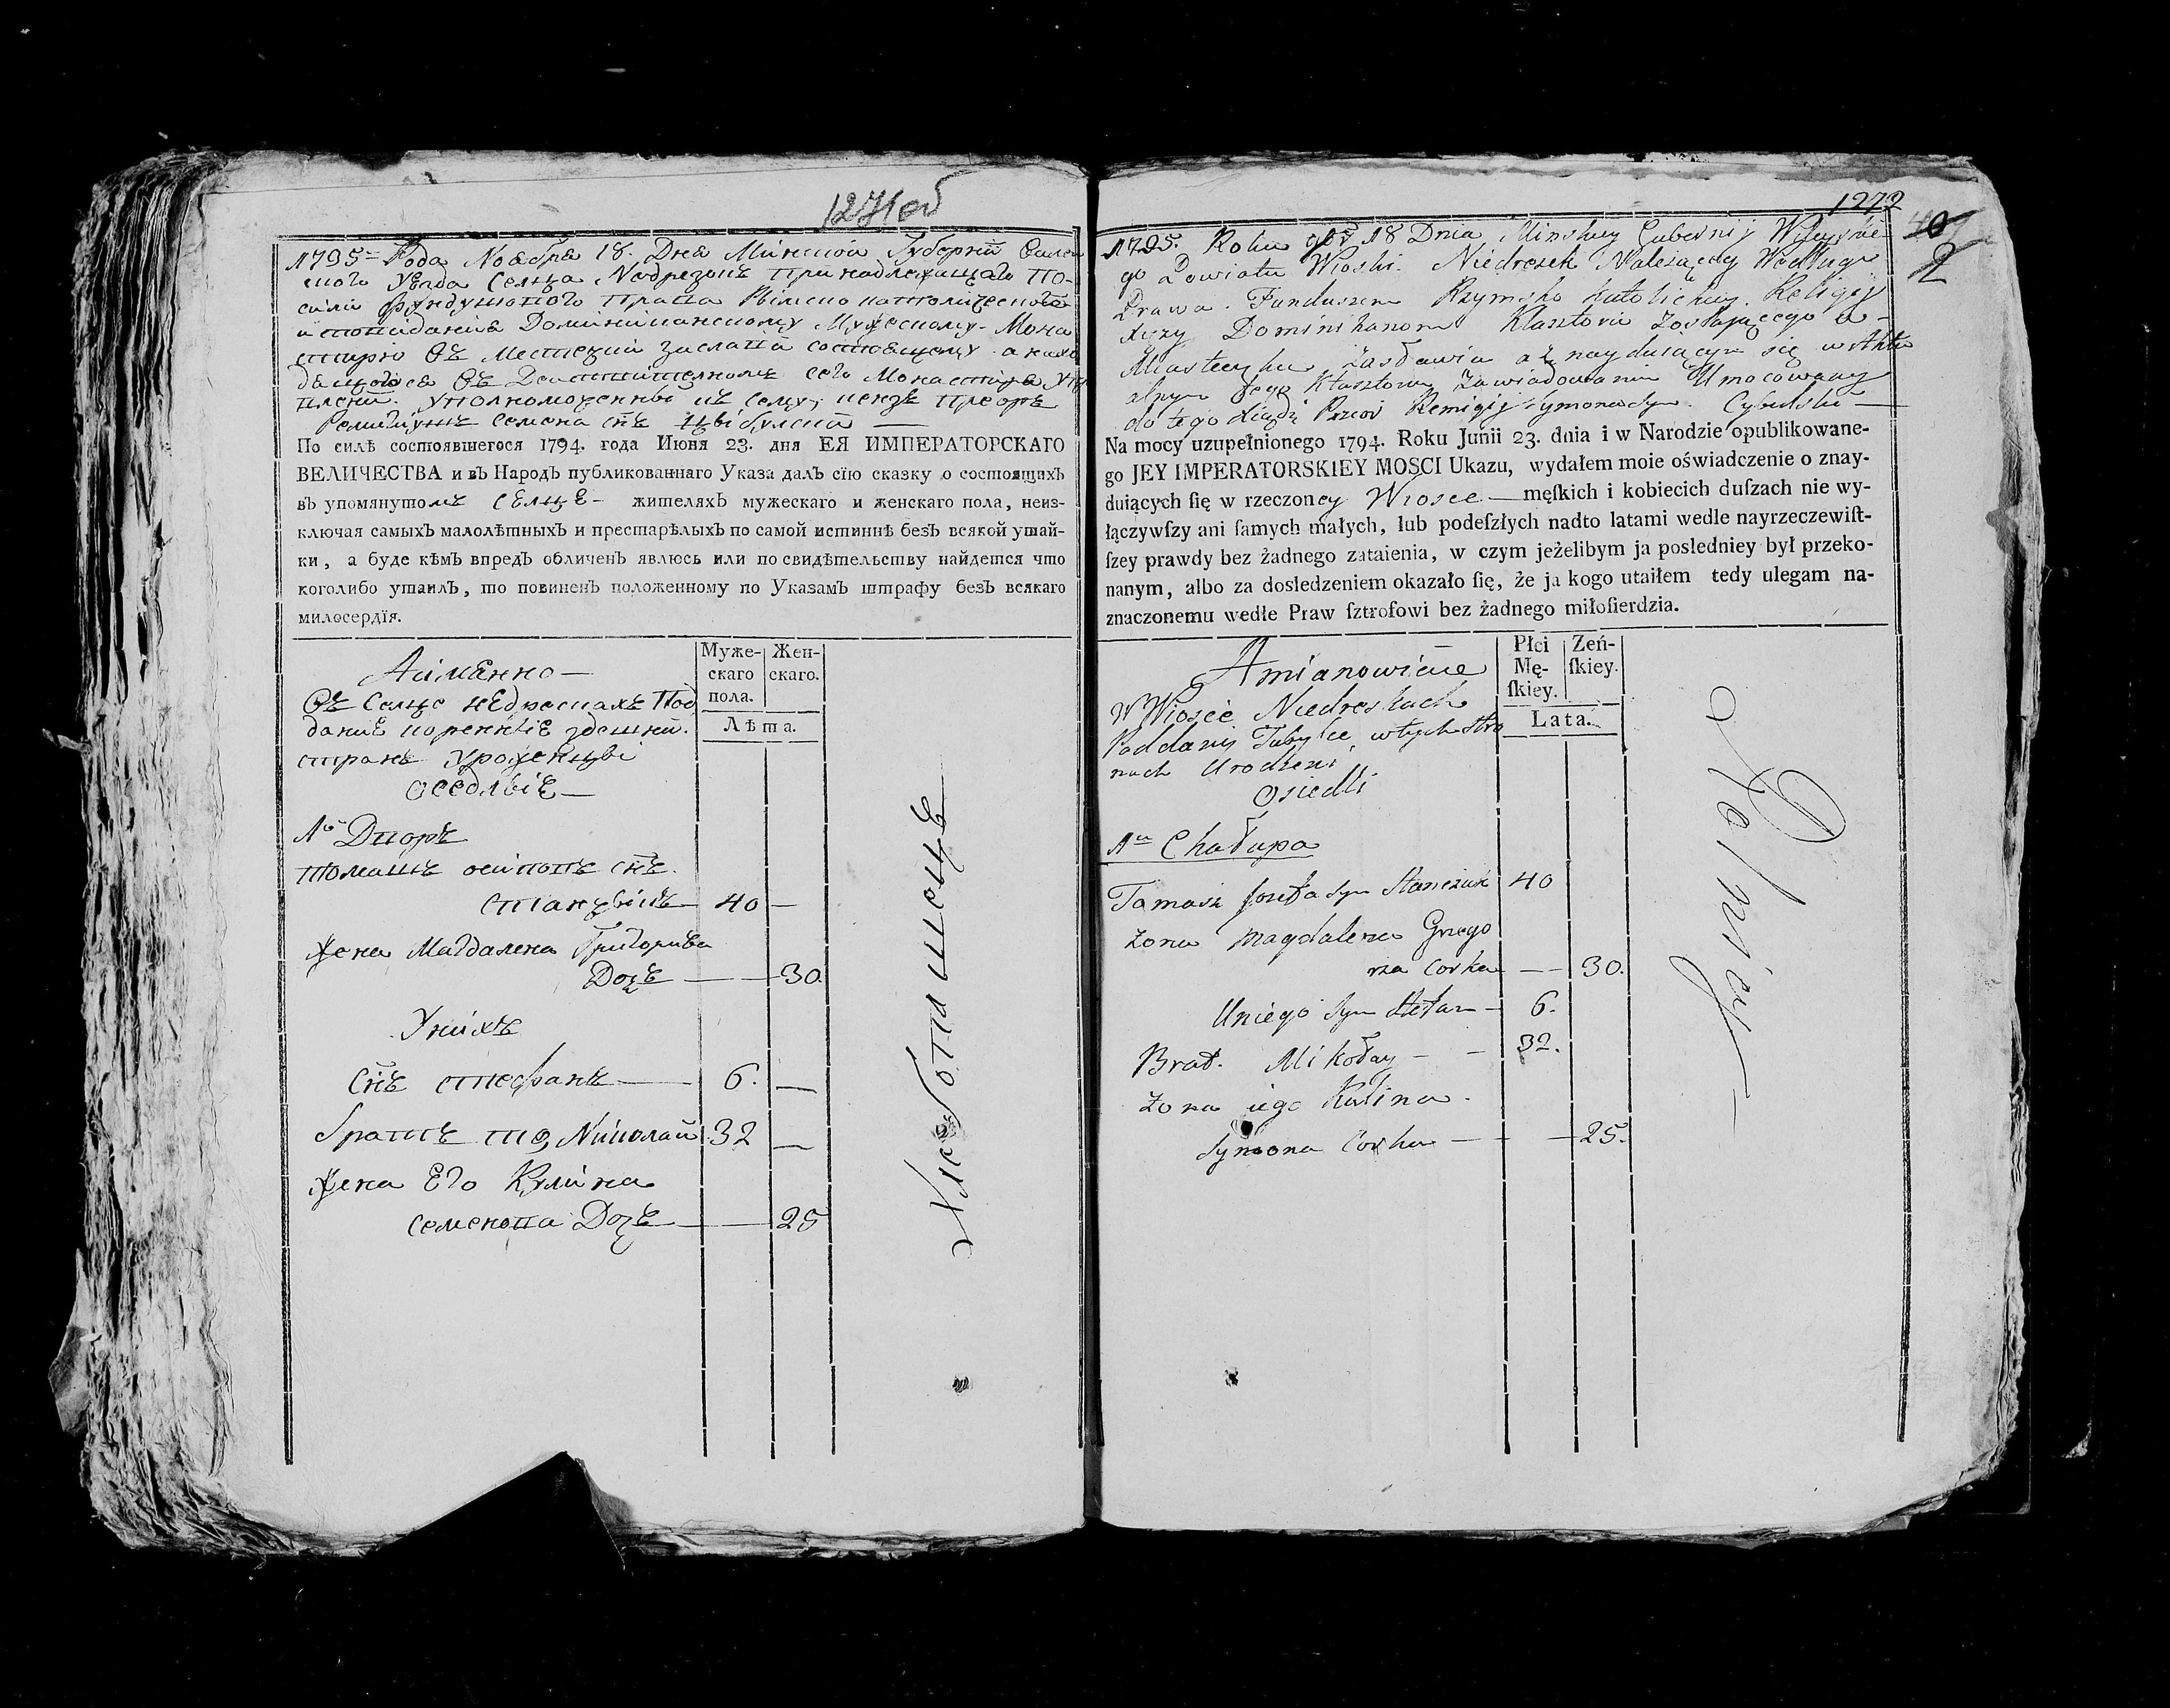 1271об
1795 Года Ноября 18. Дня Минской Губернїи Вилей
ского Уезда Селца Недрезокъ принадлежащаго по
силы фундушового права Римско католического
Доминиканскому Мужескому Мона
стирю въ Местечки Заславя состоящему а нахо
дящогося въ Действителномъ сего Монастиря
уполномоченны къ сему, Прѣоръ
Ремигиушъ Семена снъ Цыбулски
По силѣ состоявшегося 1794. года Июня 23. дня ЕЯ ИМПЕРАТОРСКАГО
ВЕЛИЧЕСТВА и въ Народъ публикованнаго Указа далъ сїю сказку о состоящихъ
въ упомянутомъ Селце жителяхъ мужескаго и женскаго пола, неиз-
ключая самыхъ малолѣтныхъ и престарѣлыхъ по самой истиннѣ безъ всякой утай-
ки, а буде кѣмъ впредъ обличенъ явлюсь или по свидѣтельству найдется что
коголибо утаилъ, то повиненъ положенному по Указамъ штрафу безъ всякаго
милосердїя.
Аименно—
Муже-
скаго
пола.
Жен-
скаго.
Лѣта.
Въ Селце Недресках Под
дание коренніе здешни
странъ уроженцы
оседлые—
1й Дворъ
Томашъ осиповъ снъ.
станчыкъ — 40 —
Жена Магдалена Григорива
Дочъ — — 30.
У них
Снъ стефанъ — 6. —
братъ то, Николай 32 —
Жена Его Кулина
семенова Дочъ — — 25
Хлебопашоце
1272
40
2
1795. Roku 9br 18 Dnia Minskiey Gubernij Wileyskie
go Powiatu Wioski Niedresek Należącey Według
Prawa Funduszem Rzymsko katolickiey Religij
Xięży Dominikanom Klasztoru Zostającego w
Miasteczku Zasławiu a znaydującym się w Aktu
alnym tego Klasztoru Zawiadowaniu Umocowany
do tego Xiądz Przeor Remigij Symona Syn Cybulski —
Na mocy uzupełnionego 1794. Roku Junii 23. dnia i w Narodzie opublikowane-
go JEY IMPERATORSKIEY MOSCI Ukazu, wydałem moie oświadczenie o znay-
duiących ſię w rzeczoney Wiosce — męſkich i kobiecich duſzach nie wy-
łączywſzy ani ſamych małych, lub podeſzłych nadto latami wedle nayrzeczewiſt-
ſzey prawdy bez żadnego zataienia, w czym jeżelibym ja posledniey był przeko-
nanym, albo za dosledzeniem okazało ſię, że ja kogo utaiłem tedy ulegam na-
znaczonemu wedle Praw ſztrofowi bez żadnego miłoſierdzia.
Amianowicie
Płci
Mę-
ſkiey.
Zeń-
ſkiey.
Lata.
W Wiosce Niedreskach
Poddani Tubylce w tych Stro
nach Urodzeni
Osiedli
1a Chałupa
Tamasz Jozefa Syn Stanczuk 40
Zona Magdalena Grzego
rza Corka — — 30.
U niego Syn Stefan — 6.
Brat. Mikołay — — 32.
Zona iego Kulina
Symona Corka — — — 25.
Rolnicy